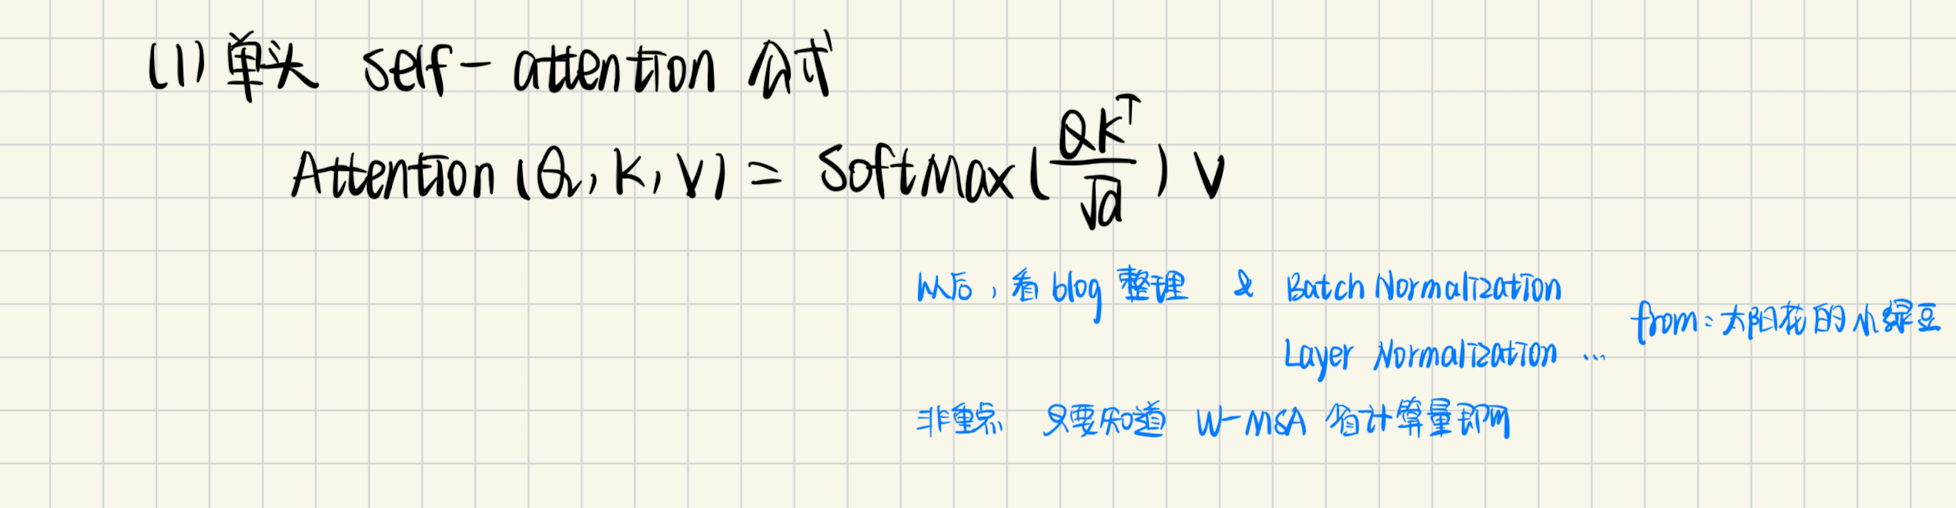 (1) 单头 self-attention 公式
Attention (Q, K, V) = SoftMax(QK^T/√d) V
以后,看blog整理 & Batch Normalization
from:太阳花的小绿豆
Layer Normalization ...
非重点 只要知道 W-MSA 省计算量即可